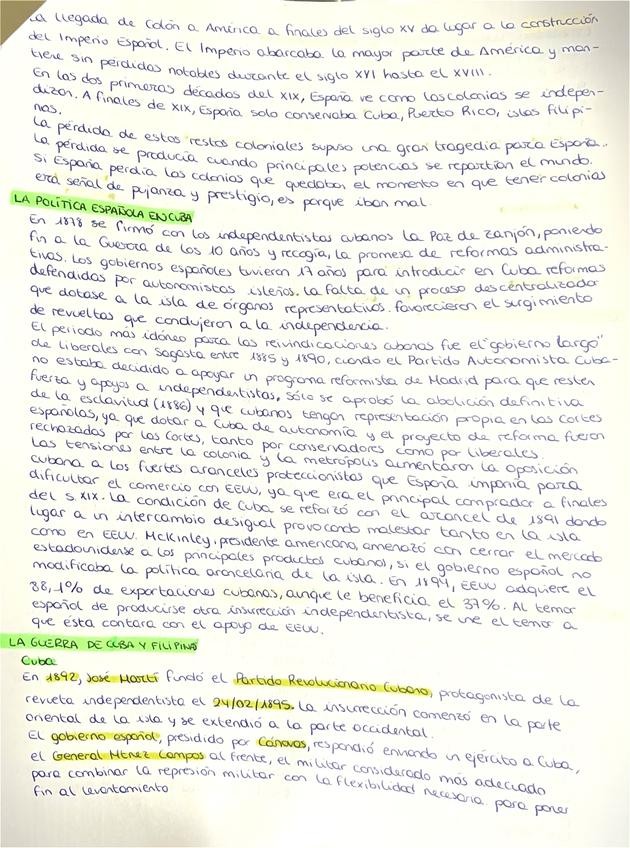 La llegada de Colón a América a finales del siglo XV da lugar a la construcción
del Imperio Español. El Imperio abarcaba la mayor parte de América y man-
tiene sin pérdidas notables durante el siglo XVI hasta el XVIII.
En las dos primeras décadas del XIX, España ve como las colonias se indepen-
dizan. A finales de XIX, España solo conservaba Cuba, Puerto Rico, islas filipi-
nas.
La pérdida de estos restos coloniales supuso una gran tragedia para España.
La pérdida se producía cuando principales potencias se repartían el mundo.
Si España perdía las colonias que quedaban, el momento en que tener colonias
era señal de pujanza y prestigio, es porque iban mal.
LA POLÍTICA ESPAÑOLA EN CUBA
En 1878 se firmó con los independentistas cubanos la Paz de Zanjón, poniendo
fin a la Guerra de los 10 años y recogía, la promesa de reformas administra-
tivas. Los gobiernos españoles tuvieron 17 años para introducir en Cuba reformas
defendidas por autonomistas isleños. La falta de un proceso descentralizador
que dotase a la isla de órganos representativos. favorecieron el surgimiento
de revueltas que condujeron a la independencia.
El periodo más idóneo para las reivindicaciones cubanas fue el "gobierno largo"
de liberales con Sagasta entre 1885 y 1890, cuando el Partido Autonomista Cuba-
no estaba decidido a apoyar un programa reformista de Madrid para que resten
fuerza y apoyos a independentistas, sólo se aprobó la abolición definitiva
de la esclavitud (1886) y que cubanos tengan representación propia en las Cortes
españolas, ya que dotar a Cuba de autonomía y el proyecto de reforma fueron
rechazados por las Cortes, tanto por conservadores como por liberales.
Las tensiones entre la colonia y la metrópolis aumentaron la oposición
cubana a los fuertes aranceles proteccionistas que España imponía para
dificultar el comercio con EEUU, ya que era el principal comprador a finales
del s.XIX. La condición de Cuba se reforzó con el arancel de 1891 dando
lugar a un intercambio desigual provocando malestar tanto en la isla
como en EEUU. McKinley, presidente americano, amenazó con cerrar el mercado
estadounidense a los principales productos cubanos, si el gobierno español no
modificaba la política arancelaria de la isla. En 1894, EEUU adquiere el
88,1% de exportaciones cubanas, aunque le beneficia el 37%. Al temor
español de producirse otra insurrección independentista, se une el temor a
que ésta contara con el apoyo de EEUU.
LA GUERRA DE CUBA Y FILIPINAS
Cuba
En 1892, José Martí fundó el Partido Revolucionario Cubano, protagonista de la
revueta independentista el 24/02/1895. La insurrección comenzó en la parte
oriental de la isla y se extendió a la parte occidental.
El gobierno español, presidido por Cánovas, respondió enviando un ejército a Cuba,
el General Mtnez Campos al frente, el militar considerado más adecuado
para combinar la represión militar con la flexibilidad necesaria para poner
fin al levantamiento